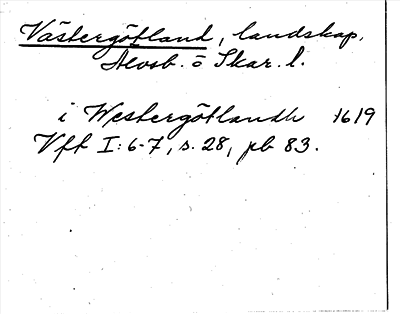 Västergötland, landskap.
Älvsb. o Skar. l.
i Westergötlandh 1619
Vft I: 6-7, s. 28, pb 83.